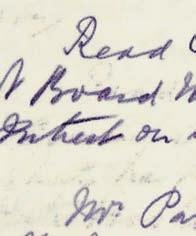 Read
Board
Interest on
Mr. Pa